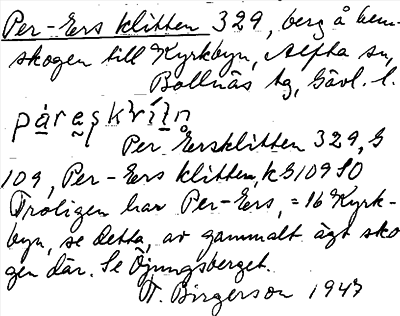 Per-Ers klitten 329, berg å hem-
skogen till Kyrkbyn, Alfta sn,
Bollnäs tg, Gävl. l.
pàreşkrí́ḷn
Per Ersklitten 329, G
109, Per-Ers klitten, k G109 SO
Troligen har Per-Ers, =16 Kyrk-
byn, se detta, av gammalt ägt sko
gen där. Se Öjungsberget.
T. Birgerson 1947